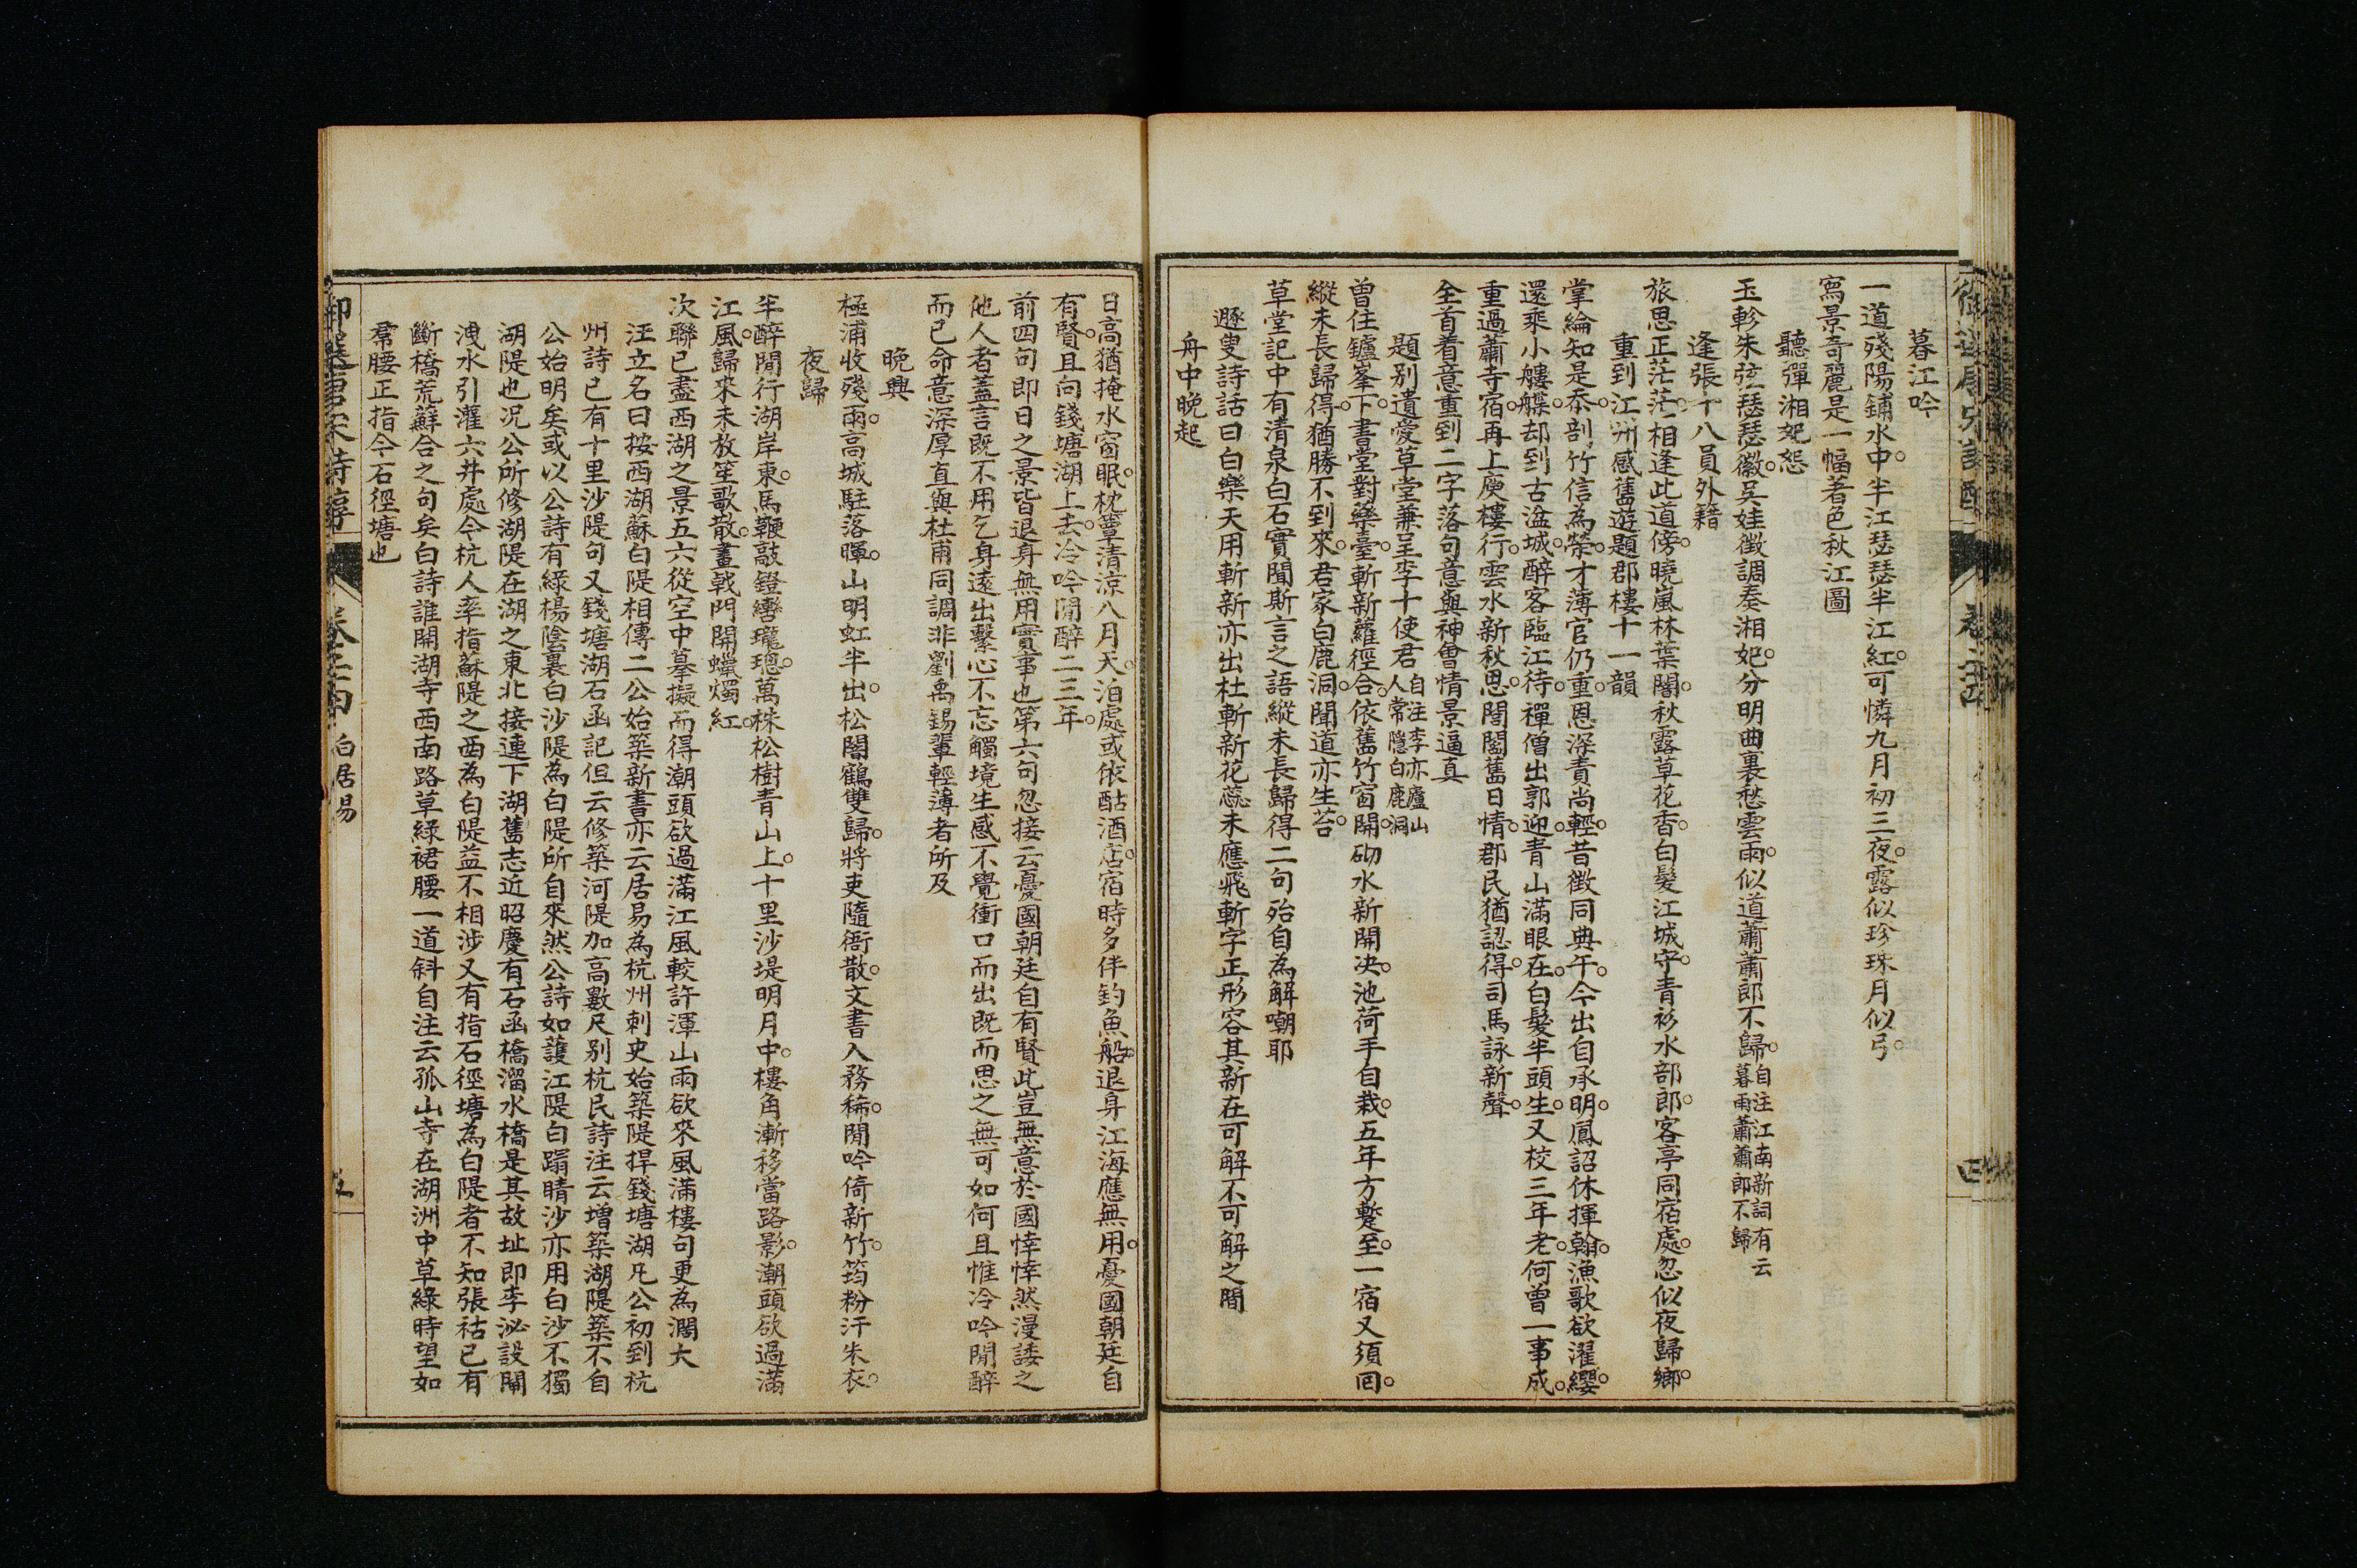 暮江吟
一道殘陽鋪水中半江瑟瑟半江紅可憐九月初三夜露似珍珠月似弓
寫景奇麗是一幅著色秋江圖
聽彈湘妃怨
玉軫朱弦瑟瑟徽吳娃徵調奏湘妃分明曲裏愁雲雨似道蕭蕭郎不歸自注江南新詞有云暮雨蕭蕭郎不歸
逢張十八員外籍
旅思正茫茫相逢此道傍曉嵐林葉闇秋露草花香白髮江城守青衫水部郎客亭同宿處忽似夜歸鄉
重到江州感舊遊題郡樓十一韻
掌綸知是忝剖竹信為榮才薄官仍重恩深責尚輕昔徵同典午今出自承明鳳詔休揮翰漁歌欲濯纓
還乘小艛艓却到古湓城醉客臨江待禪僧出郭迎青山滿眼在白髮半頭生又校三年老何曾一事成
重過蕭寺宿再上庾樓行雲水新秋思閭閻舊日情郡民猶認得司馬詠新聲
全首着意重到二字落句意與神會情景逼真
題別遺愛草堂兼呈李十使君自注李亦廬山人常隱白鹿洞
曾住鑪峯下書堂對藥臺斬新蘿徑合依舊竹窗開砌水新開決池荷手自栽五年方蹔至一宿又須回
縱未長歸得猶勝不到來君家白鹿洞聞道亦生苔
草堂記中有清泉白石實聞斯言之語縱未長歸得二句殆自為解嘲耶
遯叟詩話曰白樂天用斬新亦出杜斬新花蕊未應飛斬字正形容其新在可解不可解之間
舟中晚起
日高猶掩水窗眠枕簟清涼八月天泊處或依酤酒店宿時多伴釣魚船退身江海應無用憂國朝廷自
有賢且向錢塘湖上去冷吟閒醉二三年
前四句即日之景皆退身無用實事也第六句忽接云憂國朝廷自有賢此豈無意於國悻悻然漫諉之
他人者蓋言既不用乞身遠出繫心不忘觸境生感不覺衝口而出既而思之無可如何且惟冷吟閒醉
而已命意深厚直與杜甫同調非劉禹錫輩輕薄者所及
晚興
極浦收殘雨高城駐落暉山明虹半出松闇鶴雙歸將吏隨衙散文書入務稀閒吟倚新竹筠粉汙朱衣
夜歸
半醉閒行湖岸東馬鞭敲鐙轡瓏璁萬株松樹青山上十里沙堤明月中樓角漸移當路影潮頭欲過滿
江風歸來未放笙歌散畫戟門開蠟燭紅
次聯已盡西湖之景五六從空中摹擬而得潮頭欲過滿江風較許渾山雨欲來風滿樓句更為濶大
汪立名曰按西湖蘇白隄相傳二公始築新書亦云居易為杭州刺史始築隄捍錢塘湖凡公初到杭
州詩已有十里沙隄句又錢塘湖石函記但云修築河隄加高數尺別杭民詩注云增築湖隄築不自
公始明矣或以公詩有綠楊陰裏白沙隄為白隄所自來然公詩如護江隄白蹋晴沙亦用白沙不獨
湖隄也況公所修湖隄在湖之東北接連下湖舊志近昭慶有石函橋溜水橋是其故址即李泌設閘
洩水引灌六井處今杭人率指蘇隄之西為白隄益不相涉又有指石徑塘為白隄者不知張祜已有
斷橋荒蘚合之句矣白詩誰開湖寺西南路草綠裙腰一道斜自注云孤山寺在湖洲中草綠時望如
帬腰正指今石徑塘也
御選唐宋詩醇
白居易